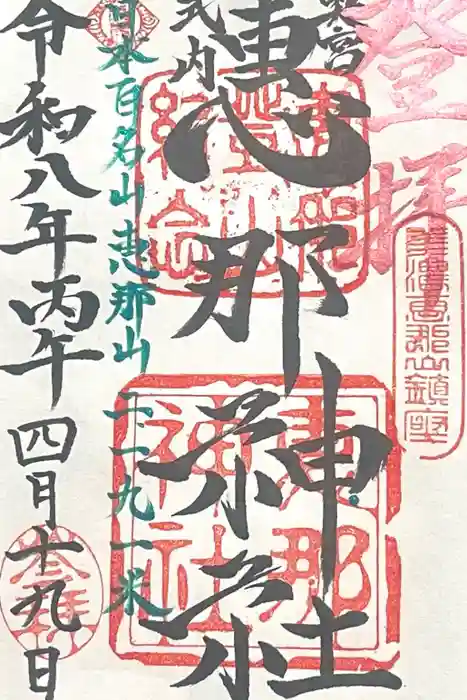 登拝
美濃恵那山鎮座
奥宮
式内
恵那神社
恵那
登山
紀念
恵那
神社
日本百名山恵那山 二一九一米
令和八年丙午四月十九日
参拝